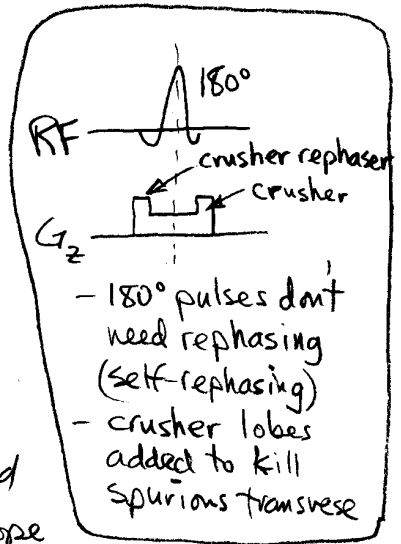 180°
RF
crusher rephaser
crusher
Gz
- 180° pulses don't
need rephasing
(self-rephasing)
- crusher lobes
added to kill
spurious transvese